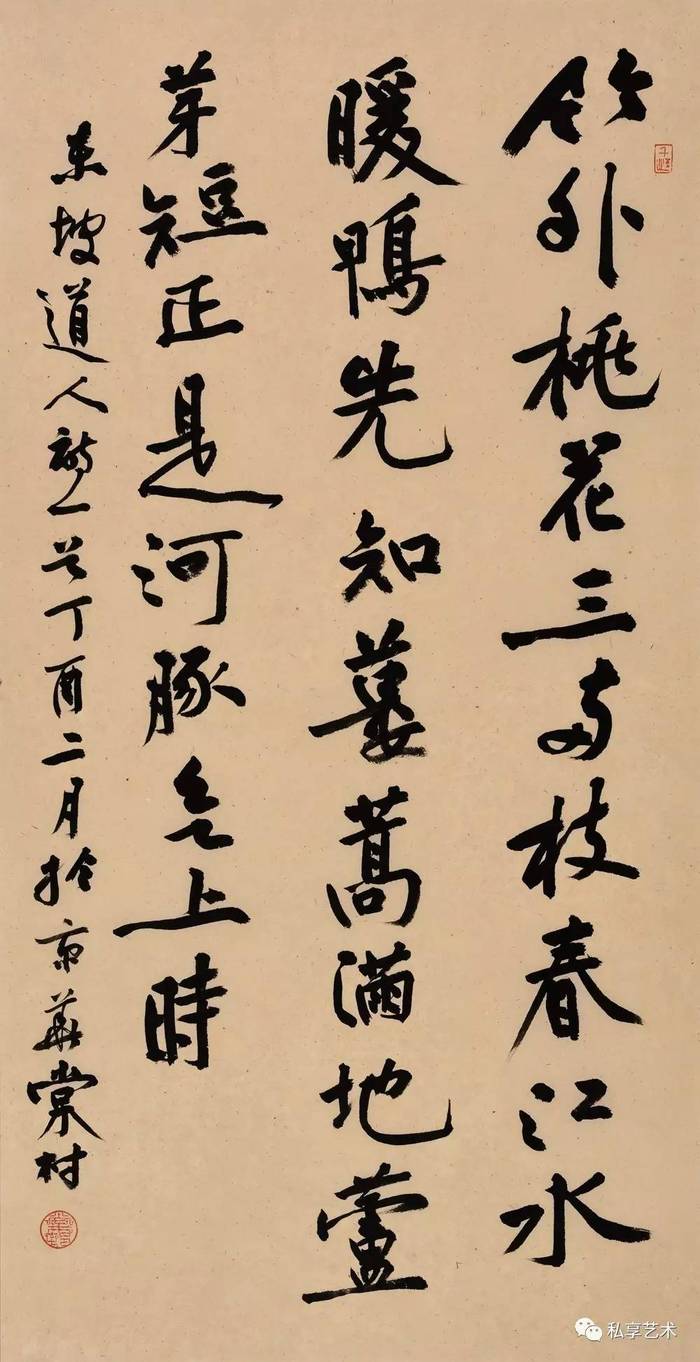 竹外桃花三兩枝春江水
暖鴨先知蔞蒿滿地蘆
芽短正是河豚欲上時
東坡道人詩一首丁酉二月扵京華棠村
私享艺术